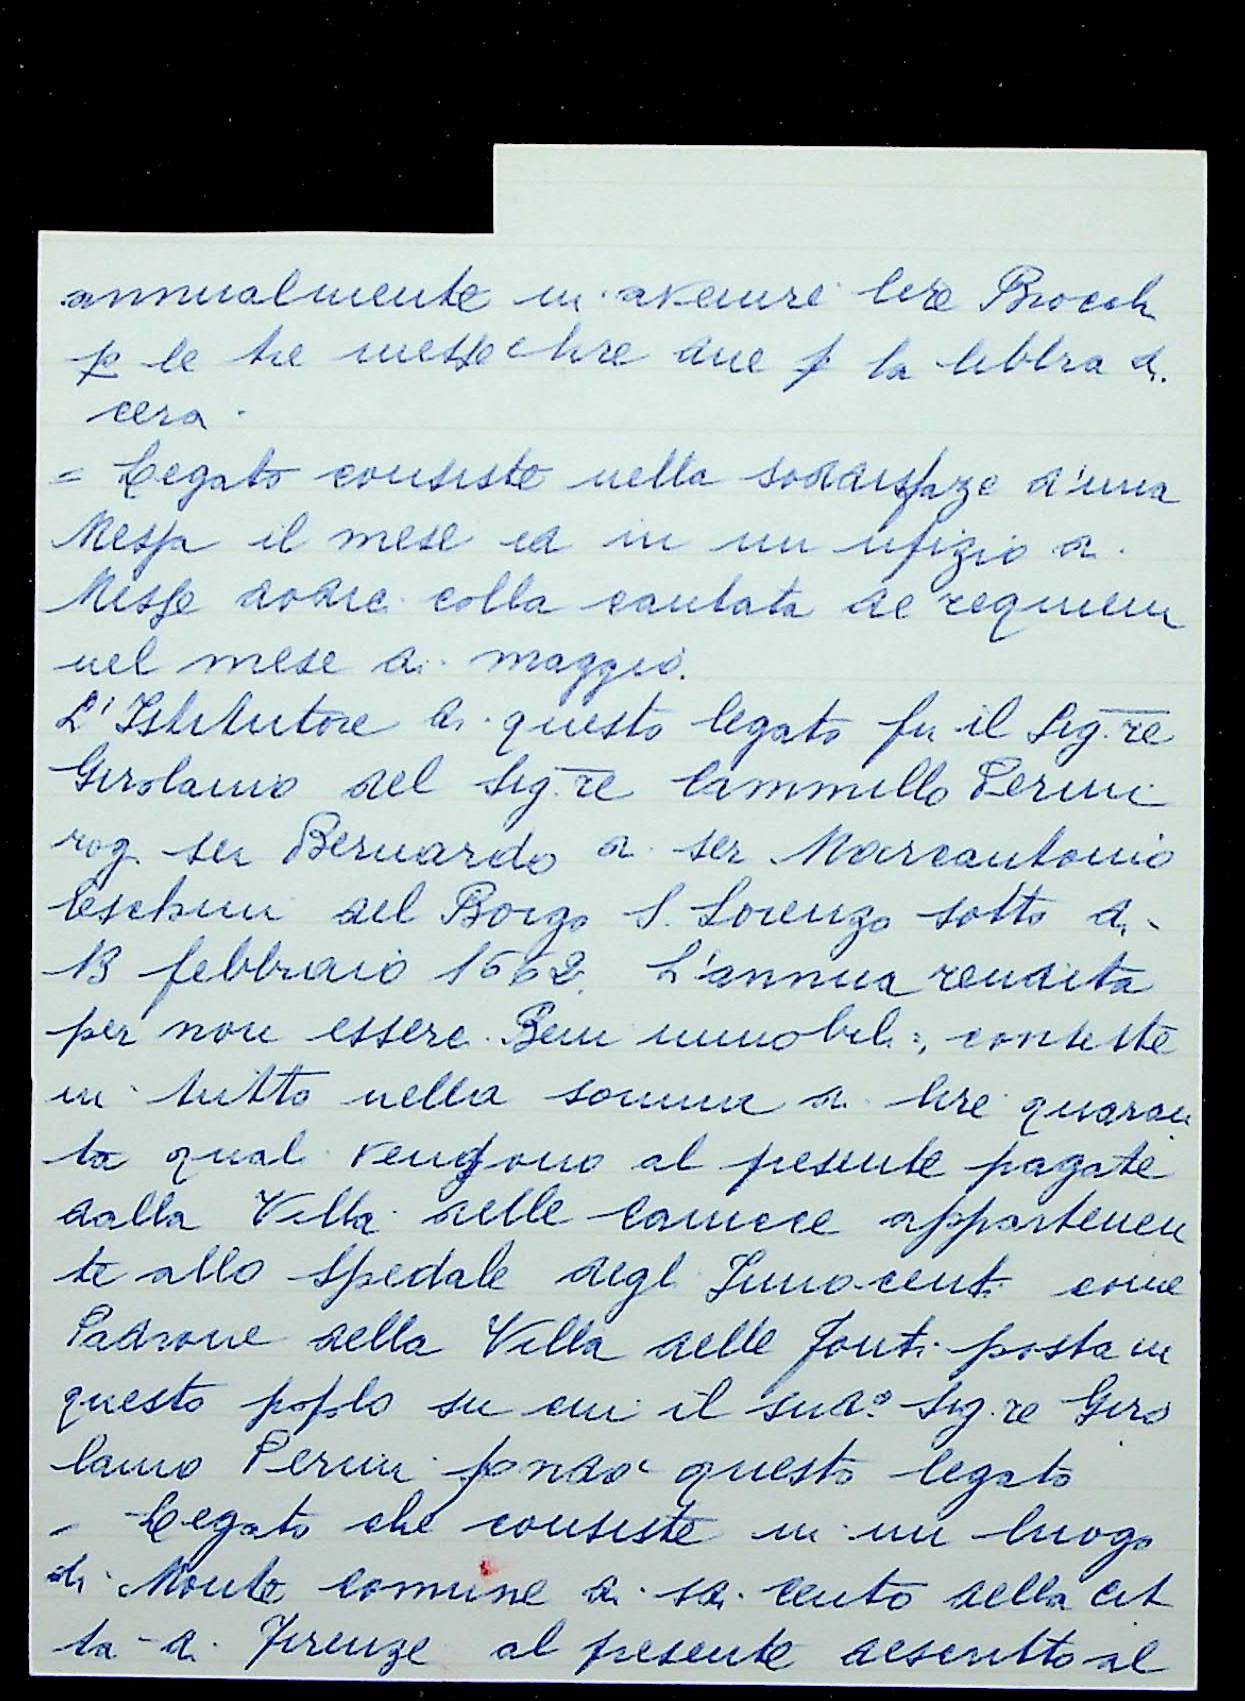 annualmente in avenire lire
p le tre messe e lire due p la libbra di
cera.
= Legato consiste nella soddisfaze d'una
Messa il mese ed in un ufizio di
Messe dodici colla cantata de requiem
nel mese di maggio.
L'Istitutore di questo legato fu il Sig.re
Girolamo del Sig.re Cammillo Perini
rog. ser Bernardo di ser Marcantonio
del Borgo S. Lorenzo sotto di
13 febbraio 1662. L'annua rendita
per non essere Beni immobili, consiste
in tutto nella somma di lire quaran
ta quali vengono al presente pagate
dalla Villa delle appartenen
te allo Spedale degl Innocenti come
Padrone della Villa delle Fonti posta in
questo popolo su cui il sud.o Sig.re Giro
lamo Perini fondò questo legato
- Legato che consiste in un luogo
di Monte comune di sdi cento della cit
ta di Firenze al presente descritto al